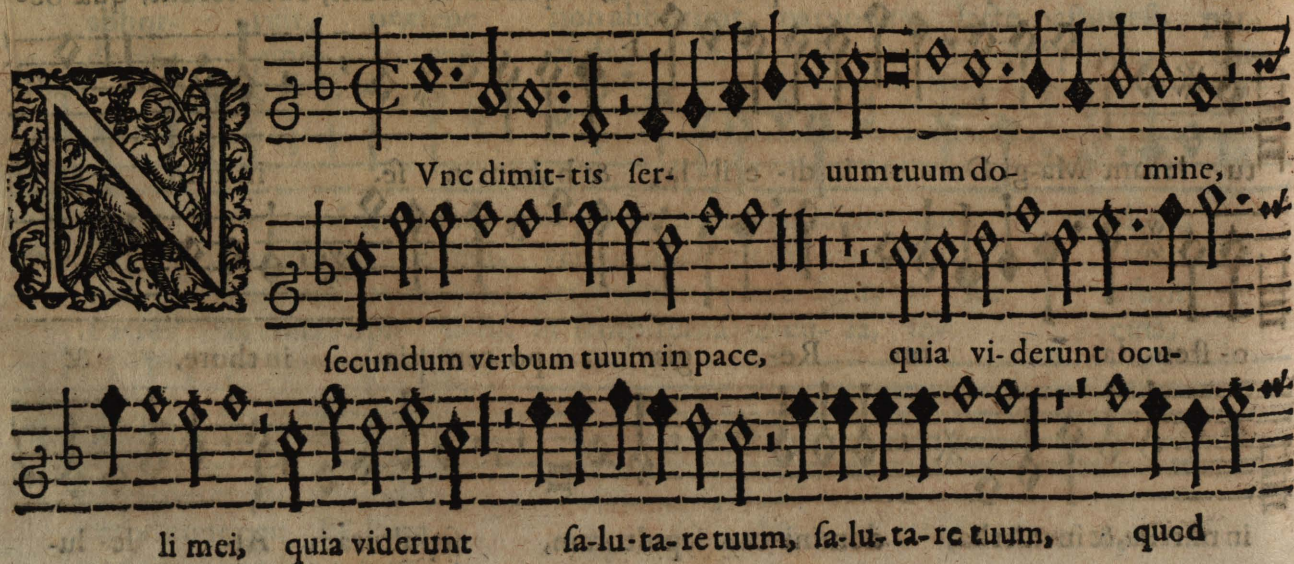 NVnc dimit-tis ſer- uum tuum do- mine,
ſecundum verbum tuum in pace, quia vi-derunt ocu-
li mei, quia viderunt ſa-lu-ta-re tuum, ſa-lu-ta-re tuum, quod